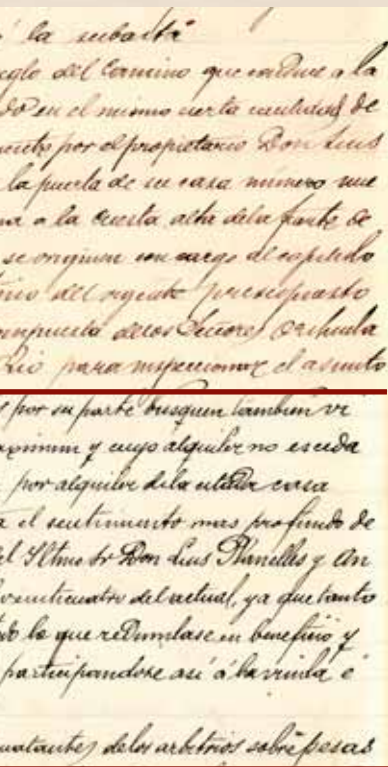 a la subasta
eglo del Camino que conduce a la
do en el mismo cierta cantidad de
por el propietario Don Luis
la puerta de su casa numero nue
a la Cuesta alta de la fuente de
se originen con cargo al capitulo
del vigente presupuesto
mpuesta delos Señores Orihuela
Rio para inspeccionar el asunto
por su parte busquen tambien vi
aximun y cuyo alquiler no esceda
por alquiler dela citada casa
a el sentimiento mas profundo de
el Iltmo Sr Don Luis Planelles y An
veinticuatro del actual, ya que tanto
vo lo que redundase en beneficio y
participandose asi á la viuda é
delos arbitrios sobre pesas